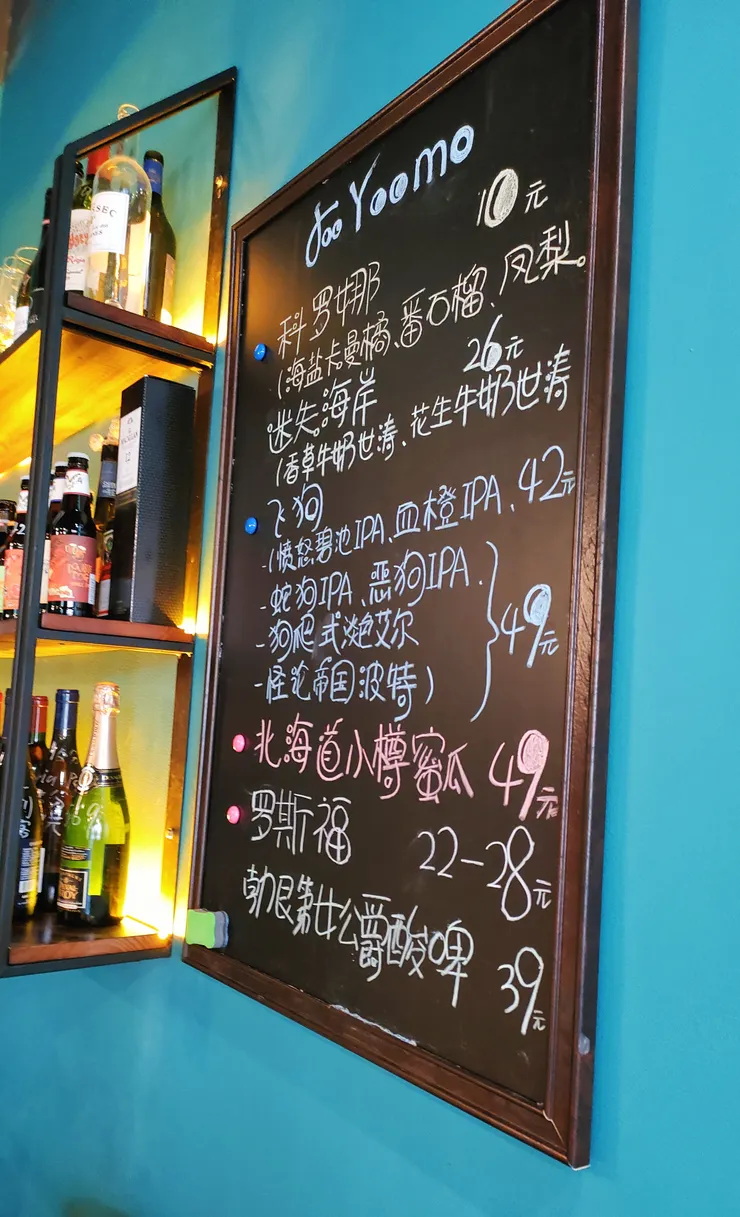 Too Yoomo
科罗娜 10元
(海盐卡曼橘、番石榴、凤梨。
迷失海岸 26元
(香草牛奶世涛、花生牛奶世涛
飞狗
-(愤怒碧池IPA、血橙IPA、42元
-蛇狗IPA、恶狗IPA.
-狗爬式淡艾尔 49元
-怪论帝国波特)
北海道小樽蜜瓜 49元
罗斯福 22-28元
勃艮第女公爵酸啤 39元